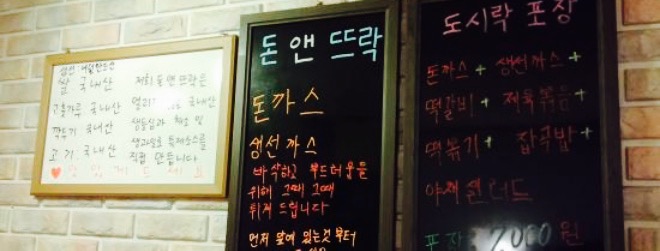 생선 : 베링해산
쌀 국내산
고춧가루 국내산
깍두기 국내산
고기 국내산
저희 돈앤뜨락은
국내산
생등심과 채소 및
생과일로 특제소스를
직접 만듭니다
♥ 맛있게 드세요
돈앤뜨락
돈까스
생선까스
바삭하고 부드러움을
위해 그때 그때
튀겨 드립니다
먼저 앞에 있는것부터
도시락 포장
돈까스 + 생선까스 +
떡갈비 + 제육볶음 +
떡볶기 + 잡곡밥 +
야채샐러드
포장 : 7000원